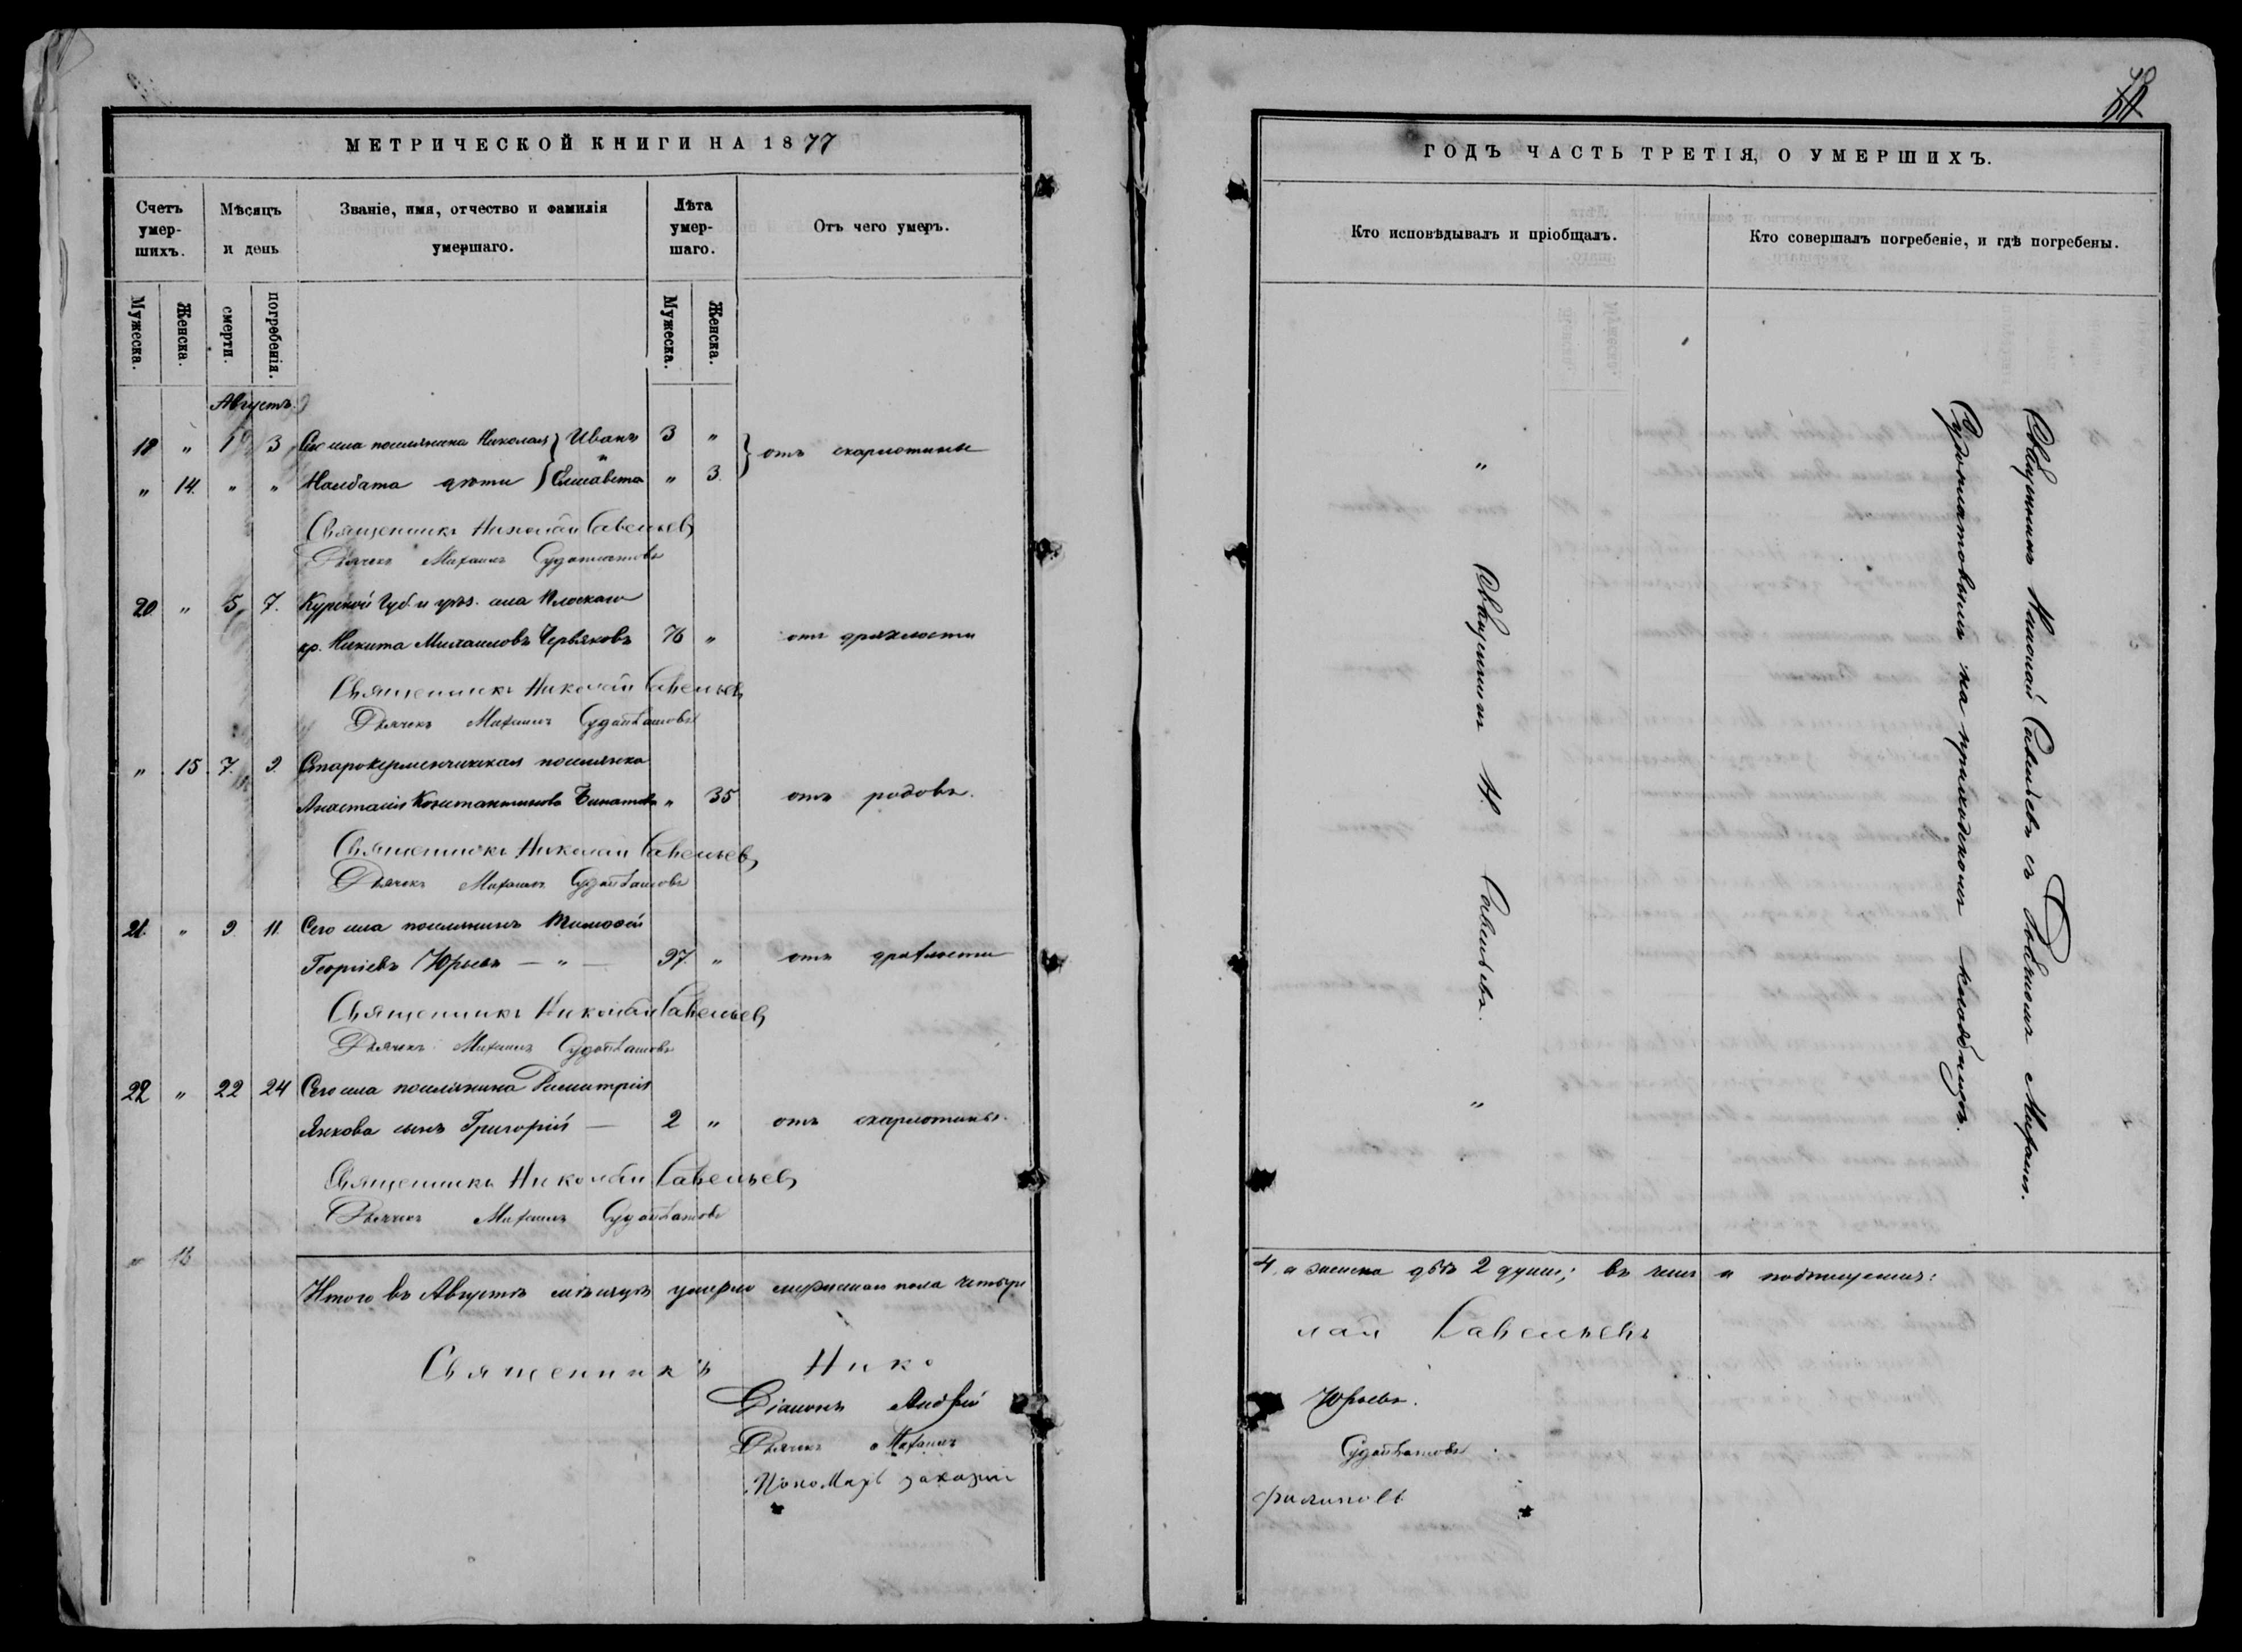 МЕТРИЧЕСКОЙ КНИГИ НА 1877
Счетъ умер-шихъ.
Мѣсяцъ и день
Званіе, имя, отчество и фамилія умершаго.
Лѣта умер-шаго.
Отъ чего умеръ.
Мужеска.
Женска.
смерти.
погребенія.
Мужеска.
Женска.
Августъ
„ 1 3 Сего села поселянина Николая } Иванъ 3 „ } отъ скарлотины
„ 14. „ „ дѣти } Елисавета „ 3
Священникъ Николай Савельевъ
Дьячекъ Михаилъ
20 „ 5 7. Курской Губ. и уѣз. села Плоскаго
кр. Никита Михаиловъ Червяковъ 76 „ отъ дряхлости
Священникъ Николай Савельевъ
Дьячекъ Михаилъ
„ 15 7. 9. Старокерменчикская поселянка
Анастасія Константинова „ 35 отъ родовъ.
Священникъ Николай Савельевъ
Дьячекъ Михаилъ
21. „ 9. 11. Сего села поселянинъ Тимофей
Георгіевъ Юрьевъ — „ — 97. „ отъ дряхлости
Священникъ Николай Савельевъ
Дьячекъ Михаилъ
22 „ 22 24 Сего села поселянина Димитрія
сынъ Григорій — 2 „ отъ скарлотины.
Священникъ Николай Савельевъ
Дьячекъ Михаилъ
Итого въ Августѣ мѣсяцѣ умерло мужеска пола четыре
Священникъ Нико
Діаконъ Андрей
Дьячекъ Михаилъ
Пономарь Захарій
ГОДЪ ЧАСТЬ ТРЕТІЯ, О УМЕРШИХЪ.
Кто исповѣдывалъ и пріобщалъ.
Кто совершалъ погребеніе, и гдѣ погребены.
„ Священникъ Н. Савельевъ. „
Священникъ Николай Савельевъ съ Дьячкомъ Михаил.
на приходскомъ кладбищѣ.
4, а женска двѣ 2 души; въ чемъ и подпишемся:
лай Савельевъ
Юрьевъ.
Филиповъ